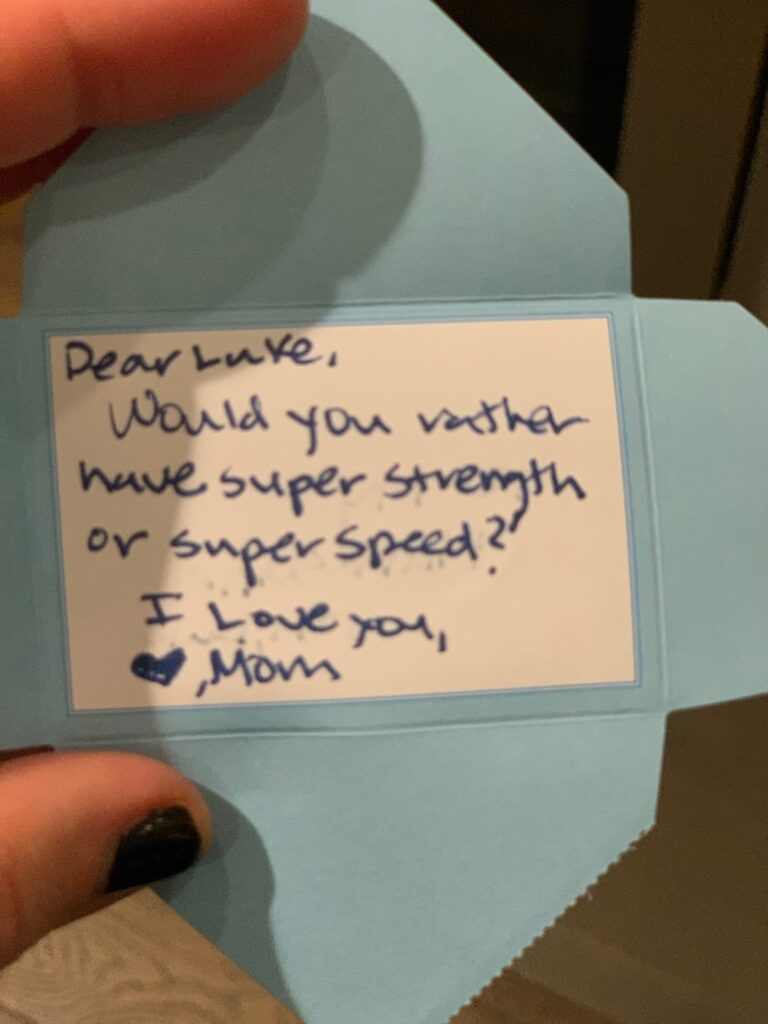 Dear Luke,
Would you rather
have super strength
or super speed?
I Love you,
♥, Mom